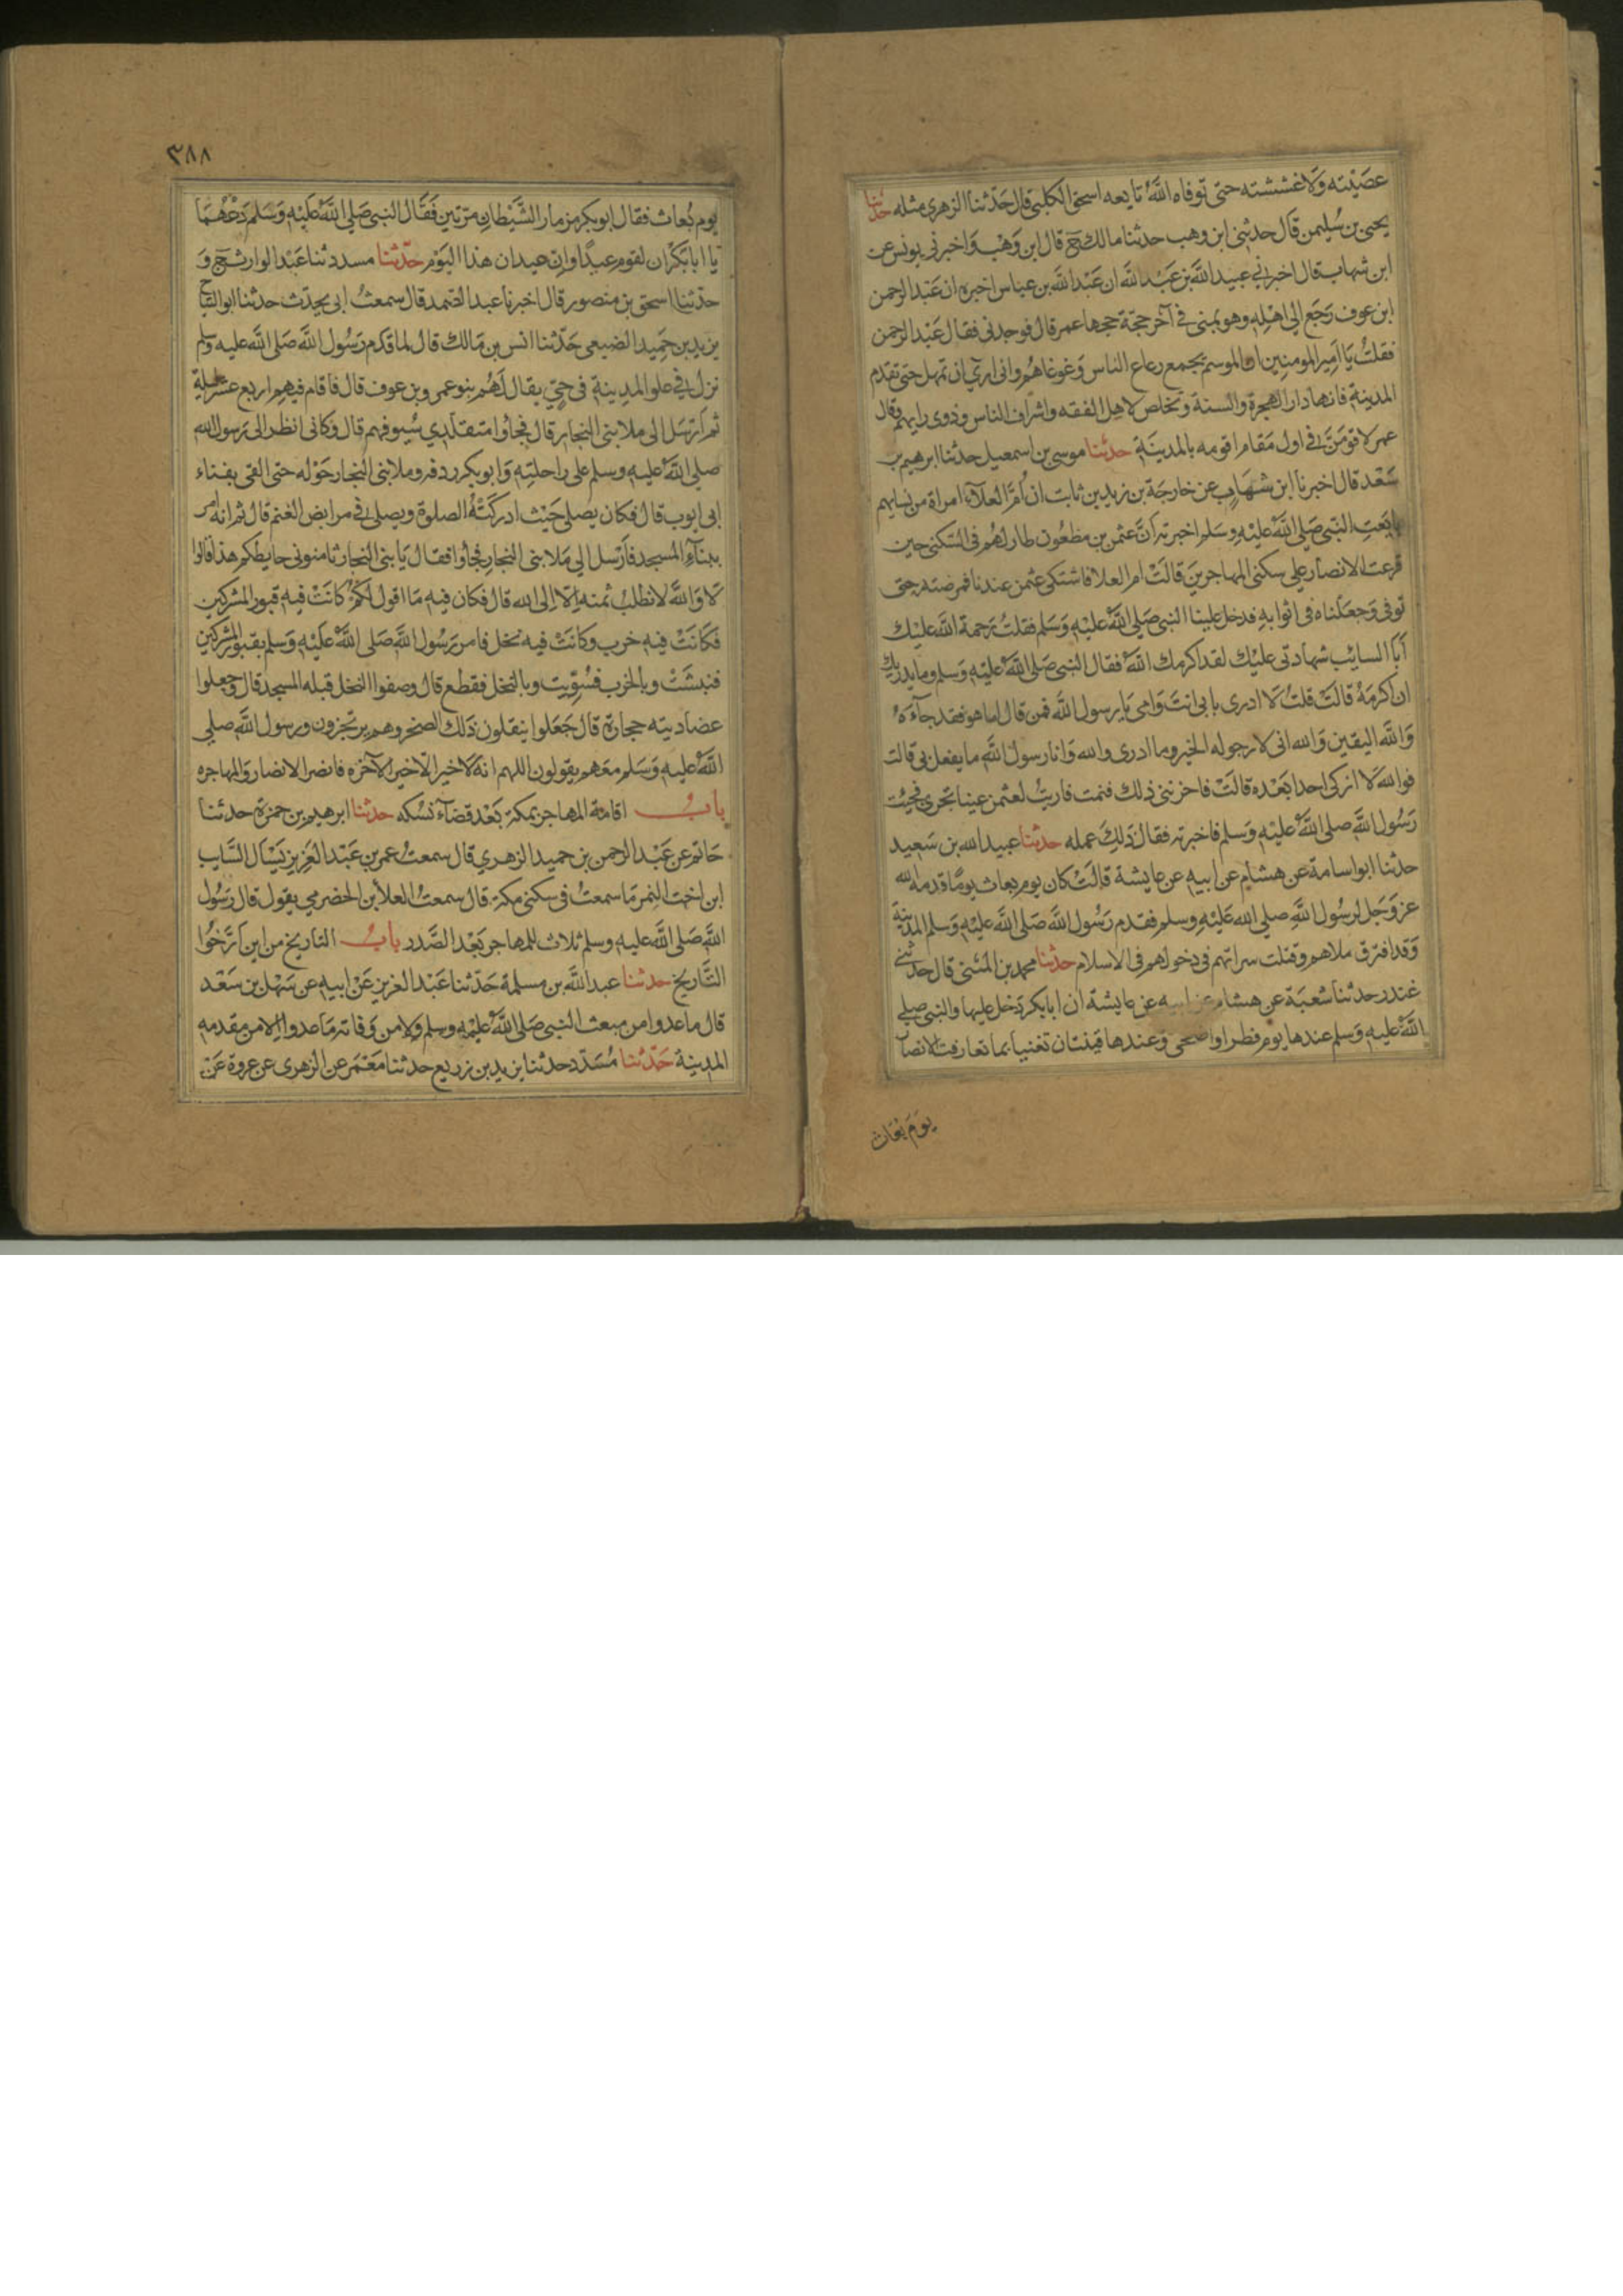 عصيته ولا غششته حتى توفاه الله تابعه اسحق الكلبى قال حدثنا الزهرى مثله حدثنا
يحيى بن سليمن قال حدثنى ابن وهب حدثنا مالك ح قال ابن وهب واخبرنى يونس عن
ابن شهاب قال اخبرنى عبيد الله بن عبد الله ان عبد الله بن عباس اخبره ان عبد الرحمن
ابن عوف رجع الى اهله وهو بمنى فى آخر حجة حجها عمر قال فوجدنى فقال عبد الرحمن
فقلت يا امير المومنين ان الموسم يجمع رعاع الناس وغوغاهم وانى ارى ان تمهل حتى تقدم
المدينة فانها دار الهجرة والسنة وتخلص لاهل الفقه واشراف الناس وذوى رايهم وقال
عمر لاقومن فى اول مقام اقومه بالمدينة حدثنا موسى بن اسمعيل حدثنا ابرهيم بن
سعد قال اخبرنا ابن شهاب عن خارجة بن زيد بن ثابت ان ام العلاء امراة من نسايهم
بايعت النبى صلى الله عليه وسلم اخبرته ان عثمن بن مظعون طار لهم فى السكنى حين
قرعت الانصار على سكنى المهاجرين قالت ام العلا فاشتكى عثمن عندنا فمرضته حتى
توفى وجعلناه فى اثوابه فدخل علينا النبى صلى الله عليه وسلم فقلت رحمة الله عليك
أبا السايب شهادتى عليك لقد اكرمك الله فقال النبى صلى الله عليه وسلم وما يدريك
ان اكرمه قالت قلت لا ادرى بابى انت وامى يا رسول الله فمن قال اما هو فقد جاءه
والله اليقين والله انى لارجو له الخير وما ادرى والله وانا رسول الله ما يفعل بى قالت
فوالله لا ازكى احدا بعده قالت فاحزننى ذلك فنمت فاريت لعثمن عينا تجرى فجيت
رسول الله صلى الله عليه وسلم فاخبرته فقال ذلك عمله حدثنا عبيد الله بن سعيد
حدثنا ابو اسامة عن هشام عن ابيه عن عايشة قالت كان يوم بعاث يوما قدمه الله
عز وجل لرسول الله صلى الله عليه وسلم فقدم رسول الله صلى الله عليه وسلم المدينة
وقد افترق ملاهم وقتلت سراتهم فى دخولهم فى الاسلام حدثنا محمد بن المثنى قال حدثنى
غندر حدثنا شعبة عن هشام عن ابيه عن عايشة ان ابا بكر دخل عليها والنبى صلى
الله عليه وسلم عندها يوم فطر او اضحى وعندها قينتان تغنيا بما تعازفت الانصار
يوم بعاث
٣٨٨
يوم بعاث فقال ابو بكر مزمار الشيطان مرتين فقال النبى صلى الله عليه وسلم دعهما
يا ابا بكر ان لقوم عيدا وان عيدان هذا اليوم حدثنا مسدد ثنا عبد الوارث ح و
حدثنا اسحق بن منصور قال اخبرنا عبد الصمد قال سمعت ابى يحدث حدثنا ابو التياح
يزيد بن حميد الضبعى حدثنا انس بن مالك قال لما قدم رسول الله صلى الله عليه وسلم
نزل فى علو المدينة فى حى يقال لهم بنو عمرو بن عوف قال فاقام فيهم اربع عشر ليلة
ثم ارسل الى ملا بنى النجار قال فجاوا متقلدى سيوفهم قال وكانى انظر الى رسول الله
صلى الله عليه وسلم على راحلته وابو بكر ردفه وملا بنى النجار حوله حتى القى بفناء
ابى ايوب قال فكان يصلى حيث ادركته الصلوة ويصلى فى مرابض الغنم قال ثم انه امر
ببناء المسجد فارسل الى ملا بنى النجار فجاوا فقال يا بنى النجار ثامنونى حايطكم هذا قالوا
لا والله لا نطلب ثمنه الا الى الله قال فكان فيه ما اقول لكم كانت فيه قبور المشركين
فكانت فيه خرب وكانت فيه نخل فامر رسول الله صلى الله عليه وسلم بقبور المشركين
فنبشت وبالخرب فسويت وبالنخل فقطع قال وصفوا النخل قبله المسجد قال وجعلوا
عضادتيه حجارة قال جعلوا ينقلون ذلك الصخر وهم يرتجزون ورسول الله صلى
الله عليه وسلم معهم يقولون اللهم انه لا خير الا خير الآخره فانصر الانصار والمهاجره
باب اقامة المهاجر بمكة بعد قضاء نسكه حدثنا ابرهيم بن حمزة حدثنا
حاتم عن عبد الرحمن بن حميد الزهرى قال سمعت عمر بن عبد العزيز يسال السايب
ابن اخت النمر ما سمعت فى سكنى مكة قال سمعت العلا بن الحضرمى يقول قال رسول
الله صلى الله عليه وسلم ثلاث للمهاجر بعد الصدر باب التاريخ من اين ارخوا
التاريخ حدثنا عبد الله بن مسلمة حدثنا عبد العزيز عن ابيه عن سهل بن سعد
قال ما عدوا من مبعث النبى صلى الله عليه وسلم ولا من وفاته ما عدوا الا من مقدمه
المدينة حدثنا مسدد حدثنا يزيد بن زريع حدثنا معمر عن الزهرى عن عروة عن